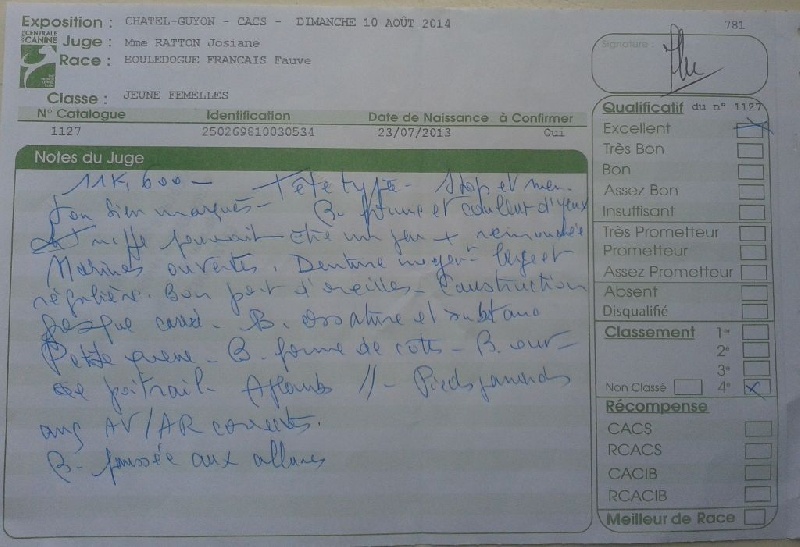 Exposition : CHATEL-GUYON - CACS - DIMANCHE 10 AOÛT 2014
781
CENTRALE
CANINE
Juge : Mme RATTON Josiane
Race : BOULEDOGUE FRANCAIS Fauve
Signature
Classe : JEUNE FEMELLES
N° Catalogue Identification Date de Naissance à Confirmer
1127 250269810030534 23/07/2013 Oui
Notes du Juge
11K,600 - Tête typée - Stop et men
ton bien marqués - B. forme et couleur d'yeux
truffe pourrait être un peu + remontée
Narines ouvertes. Denture large et
régulière. Bon port d'oreilles - Construction
presque carré. B. ossature et substance
Petite queue - B. forme de côtes - B.
poitrail Aplombs // - Pieds
ang AV/AR corrects.
B. poussée aux allures
Qualificatif du n° 1127
Excellent
Très Bon
Bon
Assez Bon
Insuffisant
Très Prometteur
Prometteur
Assez Prometteur
Absent
Disqualifié
Classement 1e
2e
3e
Non Classé 4e x
Récompense
CACS
RCACS
CACIB
RCACIB
Meilleur de Race